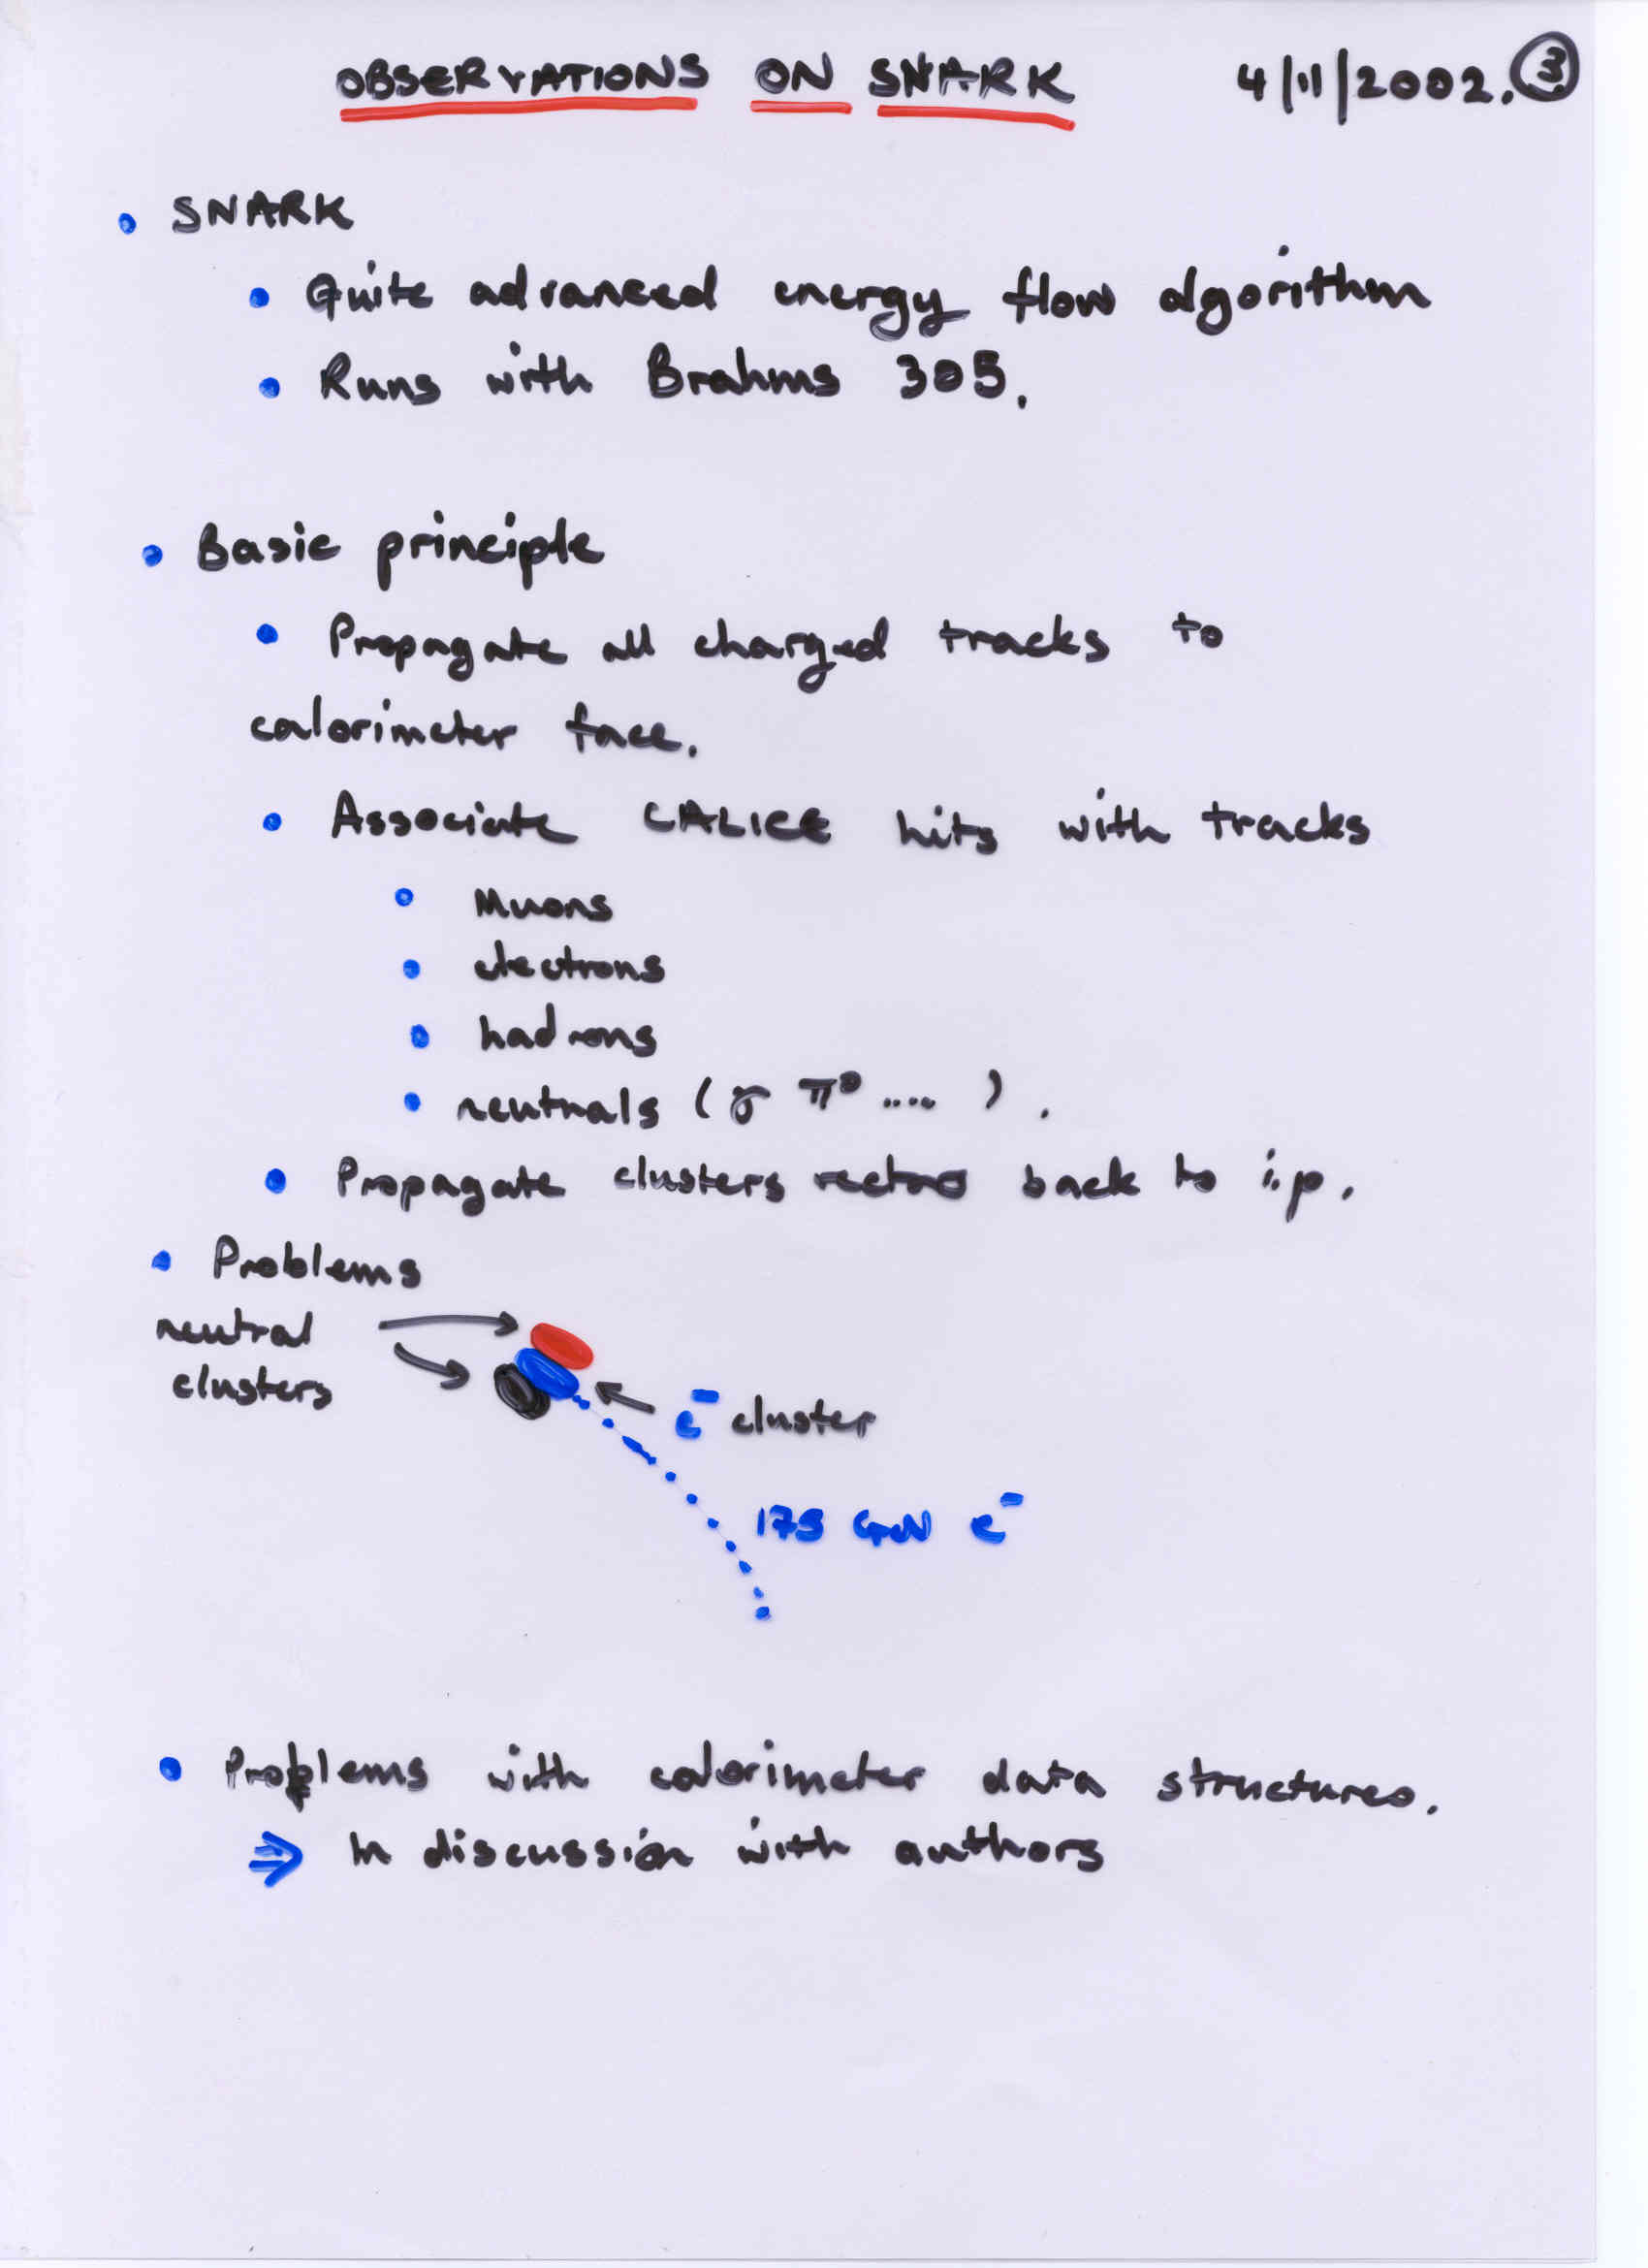 OBSERVATIONS ON SNARK 4/11/2002. 3
• SNARK
• Quite advanced energy flow algorithm
• Runs with Brahms 305.
• Basic principle
• Propagate all charged tracks to
calorimeter face.
• Associate CALICE hits with tracks
• Muons
• electrons
• hadrons
• neutrals (γ π⁰ .... ) .
• Propagate clusters back to i.p.
• Problems
neutral
clusters
e⁻ cluster
175 GeV e⁻
• Problems with calorimeter data structures.
⇒ In discussion with authors